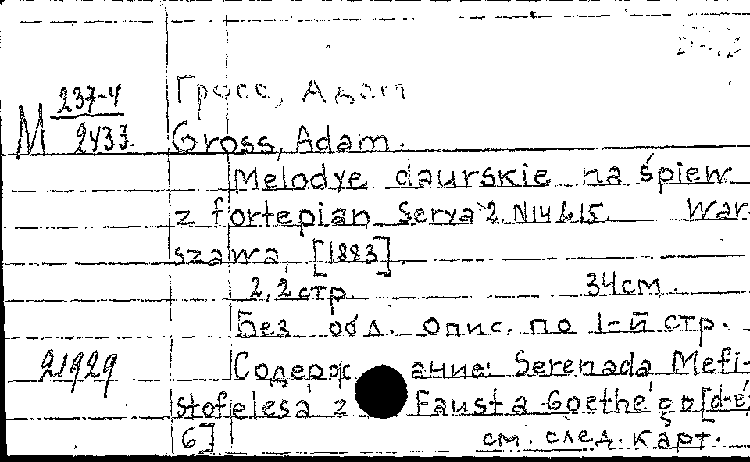 Гросс, Адам
М 237-4
2433.
Gross, Adam.
Melodye daurskie na śpiew
z fortepian. Serya 2. N 14 & 15. War-
szawa, [1883].
2,2 стр. 34 см.
Без обл. Опис. по 1-й стр.
21929
Содержание: Serenada Mefi-
stofelesa z Fausta Goethe'go [d-é
6] см. след. карт.